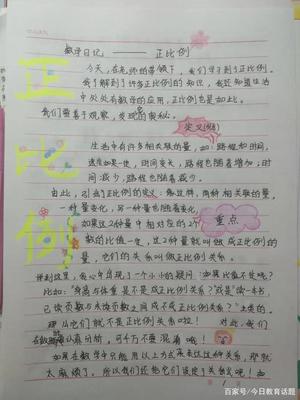 数学日记 —— 正比例
正比例
今天，在老师的带领下，我们学习到了正比例。
我了解到了许多正比例的知识，我还知道生活
中处处有数学的应用，正比例也是如此。
我们要善于观察，发现的奥秘。
定义
生活中有许多相关联的量，如：路程和时间，
速度如果一定，时间变长，路程也随着增加；时
间减少，路程也随着减少。
由此，引出了正比例的意义：像这样，两种相关联的量，
一种量变化，另一种量也随着变化，
如果这2种量中相对应的2个
重点
数的比值一定，这2种量就叫做成正比例的
量，它们的关系叫做正比例关系。
我心中出现了一个小小的疑问
比如："身高与体重是不是成正比例关系？"或是"读一本书，
已读页数与未读页数之间成不成正比例关系？"
它们就不是正比例关系啦！对此，我们
认真分析，可千万不要混着哦！
如果在数学中只能用以上方式来表达这种关系，那就
太麻烦了。所以我们还把它们
百家号/今日教育话题